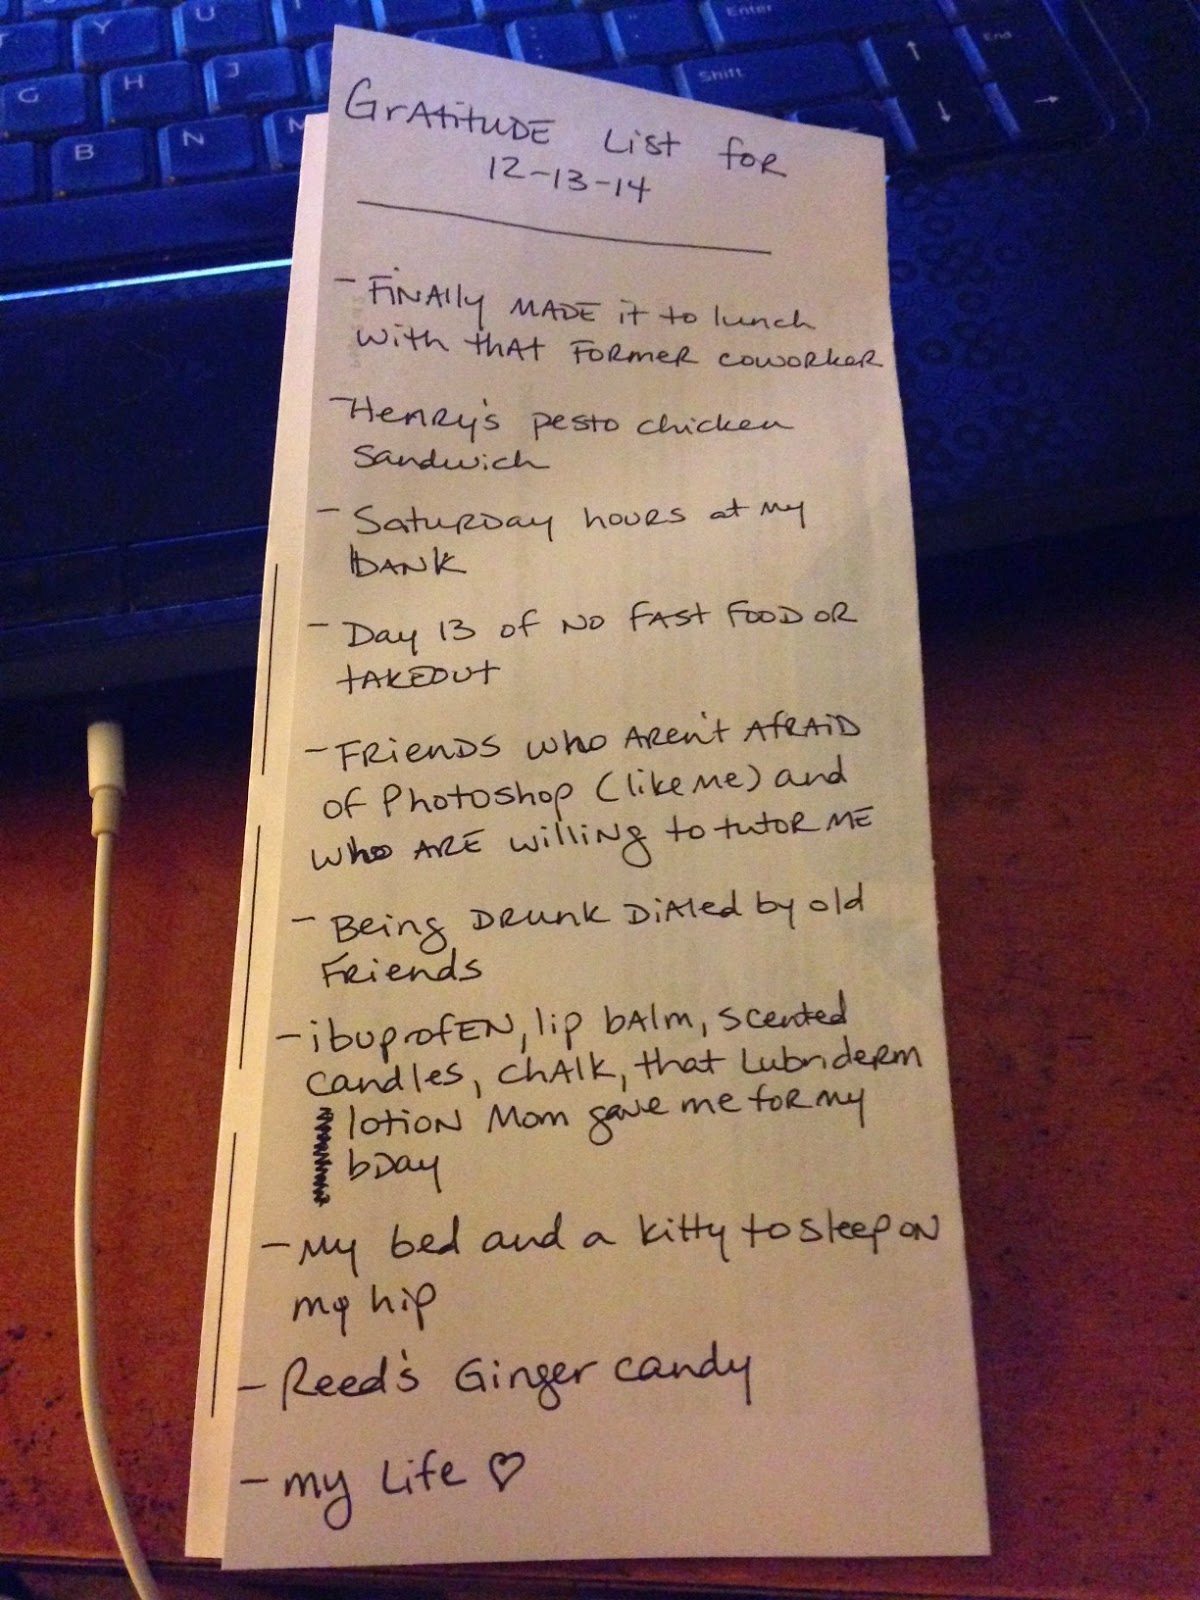 Y U I
G H J
B N M
Enter
Shift
End
Gratitude List for
12-13-14
- Finally made it to lunch
with that former coworker
- Henry's pesto chicken
sandwich
- Saturday hours at my
bank
- Day 13 of no fast food or
takeout
- Friends who aren't afraid
of Photoshop (like me) and
who are willing to tutor me
- Being drunk dialed by old
friends
- ibuprofen, lip balm, scented
candles, chalk, that Lubriderm
lotion Mom gave me for my
bday
- My bed and a kitty to sleep on
my hip
- Reed's Ginger candy
- my Life ♡